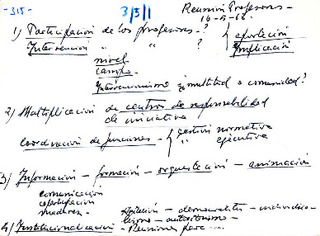 -315-
3/3/1
Reunión Profesores-
16-9-66-
1) Participación de los profesores-? { aportación
Intervención " " ? { implicación
nivel
campo
Intervencionismo ¿multitud o comunidad?
2) Multiplicación de centros de responsabilidad
de iniciativa
Coordinación de funciones- { gestión normativa
" ejecutiva
3) Información - formación - orquestación - animación
comunicación
satisfacción
madurez-
4) Institucionalización - Reuniones para ...